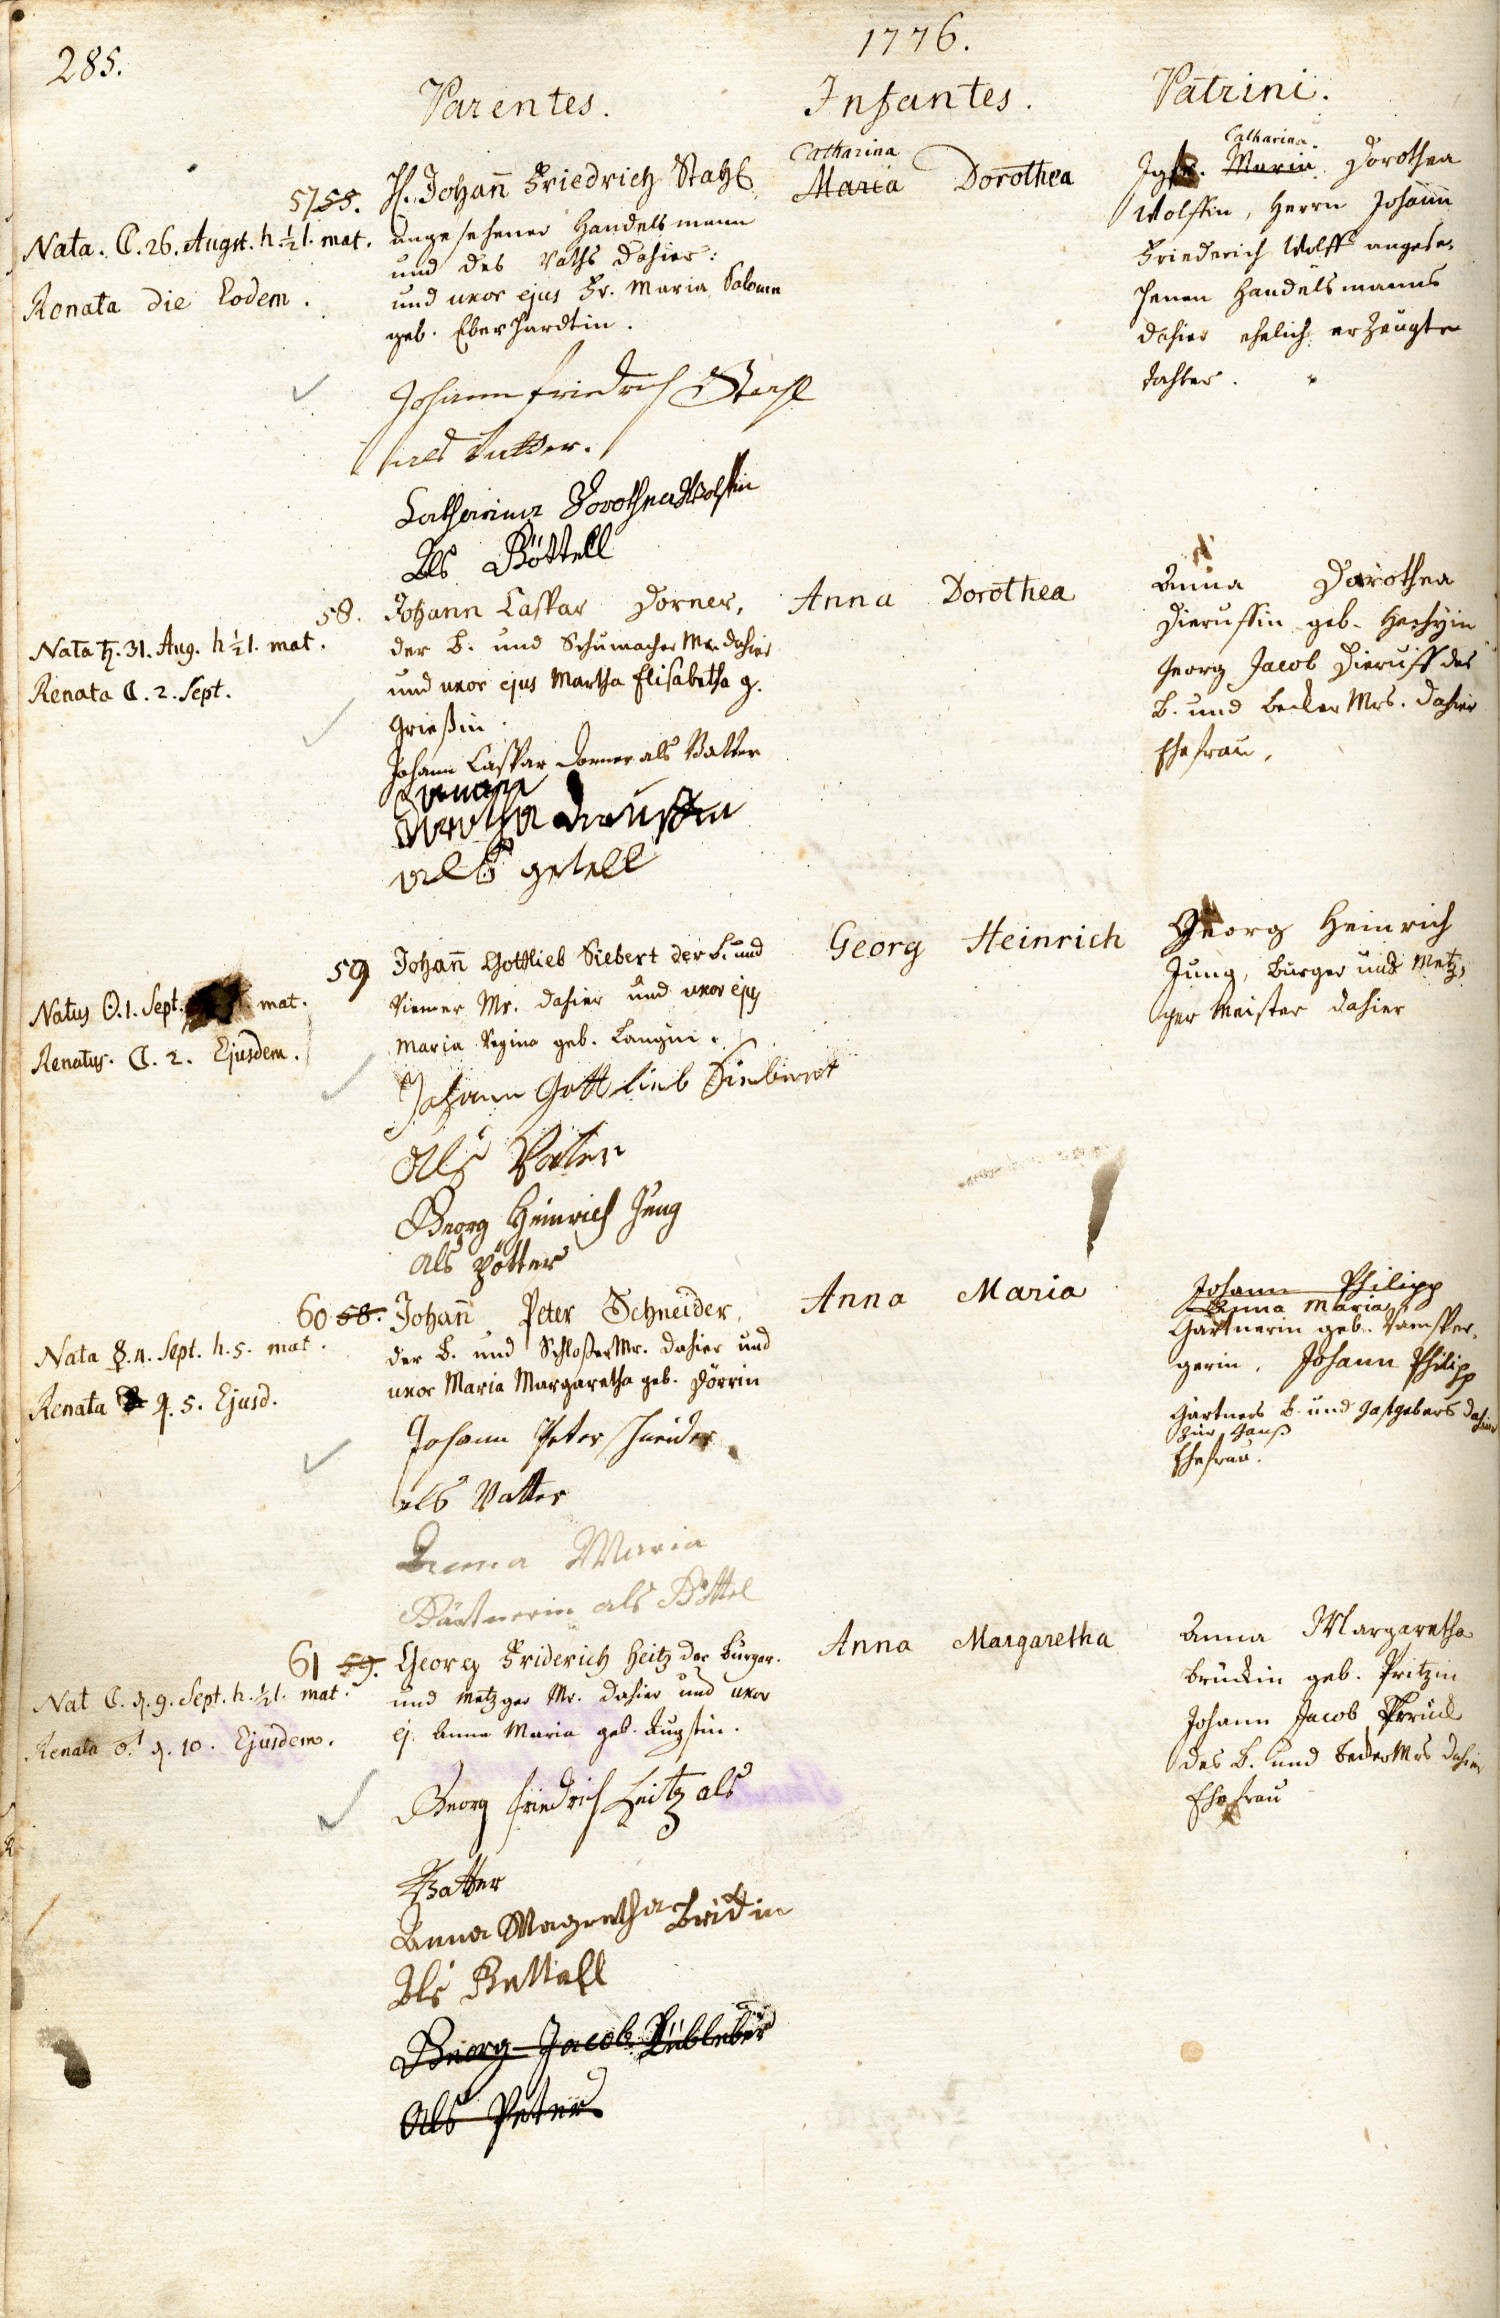 285.
1776.
Parentes.
Infantes.
Patrini.
57 55.
Nata. ☾. 26. Augst. h. ½1. mat.
Renata die Eodem.
H. Johann Friedrich Stahl
angesehener Handelsmann
und des Raths dahier:
und uxor ejus Fr. Maria Salome
geb. Eberhardtin.
Johann Friedrich Stahl
als Vatter.
Catharina Dorothea Wolffin
Als Göttell
Catharina
Maria Dorothea
Catharina
Jgfr. Maria Dorothea
Wolffin, Herrn Johann
Friederich Wolff angese-
henen Handelsmanns
dahier ehelich erzeugte
Tochter.
58.
Nata ♄. 31. Aug. h ½1. mat.
Renata ☾. 2. Sept.
Johann Caspar Dorner,
der B. und Schumacher Mr. dahier
und uxor ejus Martha Elisabetha g.
Grießin.
Johann Caspar Dorner als Vatter
als getell
Anna Dorothea
Anna Dorothea
Dieruffin geb.
Georg Jacob Dieruff des
B. und Becker Mrs. dahier
Ehefrau,
59
Natus ☉. 1. Sept. mat.
Renatus. ☾. 2. Ejusdem.
Johann Gottlieb Siebert der B. und
Riemer Mr. dahier und uxor ejus
Maria Regina geb. Langin.
Johann Gottlieb Siebert
Als Vater
Georg Heinrich Jung
als Pötter
Georg Heinrich
Georg Heinrich
Jung, Burger und Metz-
ger Meister dahier
60 58.
Nata ☿. 4. Sept. h. 5. mat.
Renata ♃. 5. Ejusd.
Johann Peter Schneider,
der B. und Schloßer Mr. dahier und
uxor Maria Margaretha geb. Dörrin
Johann Peter Schneider
als Vatter
Anna Maria
Gärtnerin als Göttel
Anna Maria
Johann Philipp
Anna Maria
Gärtnerin geb. Ramsper-
gerin, Johann Philipp
Gärtners B. und Gastgebers dahier
zur Ganß
Ehefrau.
61 59.
Nat ☾. d. 9. Sept. h. ½1. mat.
Renata ♂. d. 10. Ejusdem.
Georg Friderich Heitz der Burger.
und Metzger Mr. dahier und uxor
ej. Anna Maria geb. Augstin.
Georg Friedrich Heitz als
Vatter
Anna Magretha Brickin
Als Gettell
Georg Jacob
Als Peter
Anna Margaretha
Anna Margaretha
Brückin geb. Pritzin
Johann Jacob Brück
des B. und Becker Mrs dahier
Ehefrau